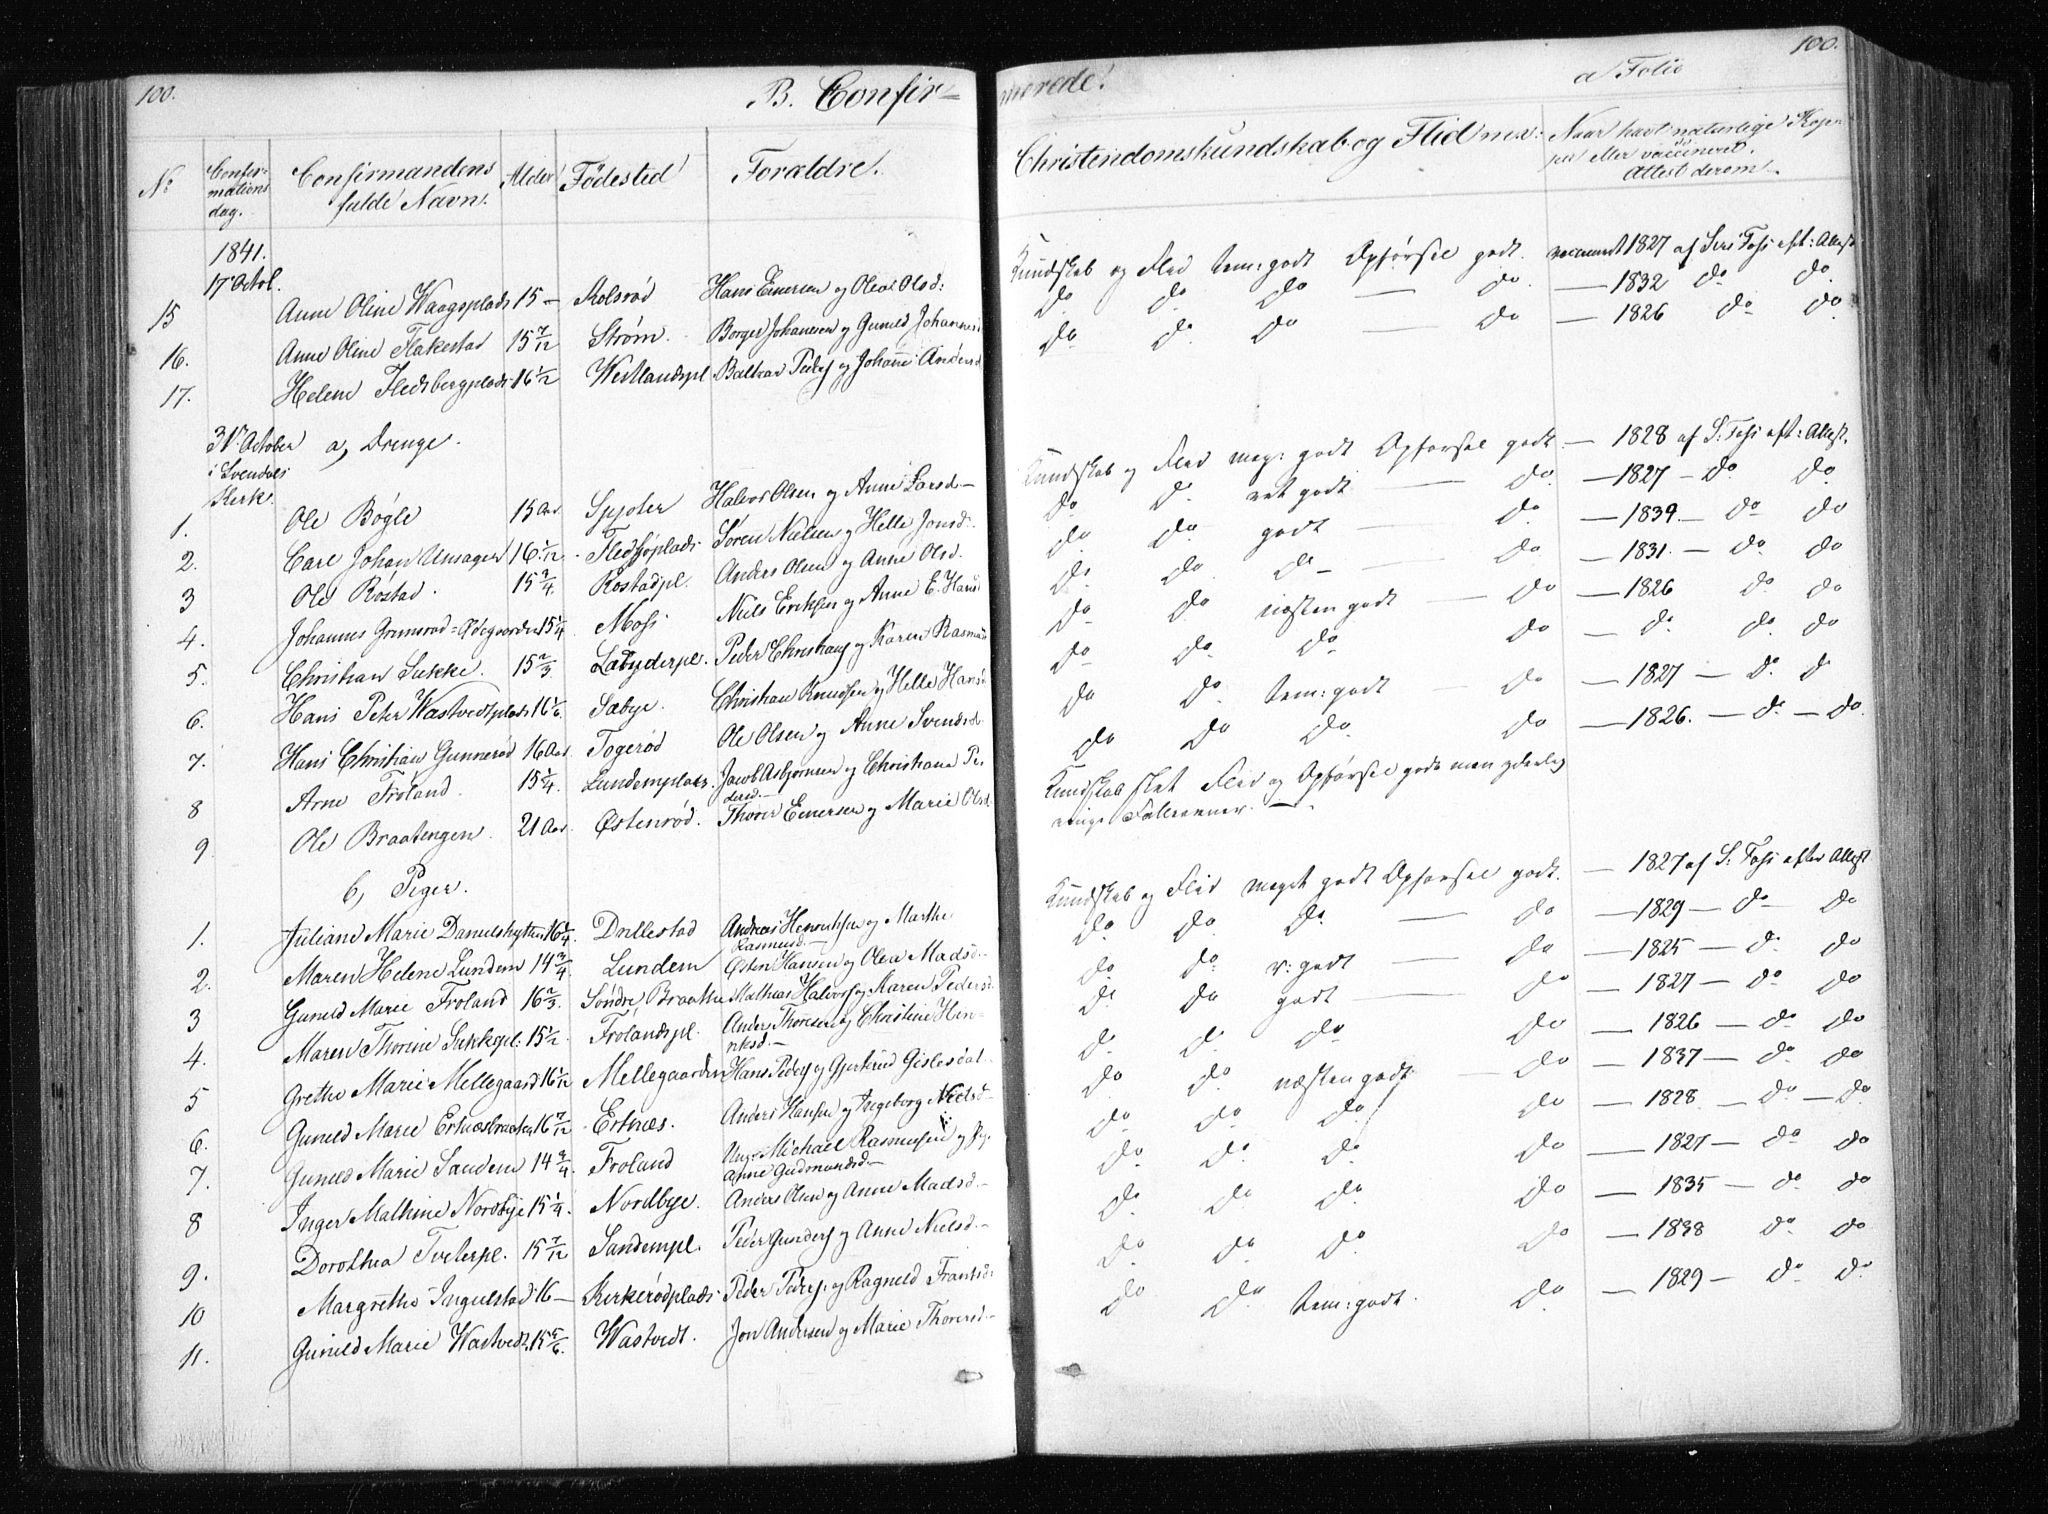 100. B. Confir- merede. a Folio 100.
No Confirmations dag. Confirmandens fulde Navn. Alder Fødested Forældre. Christendomskundskab og Flid m.v: Naar havt naturlige Kopper eller vaccineret. Attest derom.
1841.
17 Octob.
15 Anne Oline Waagsplads 15 — Kolsrød Hans Enersen og Olea Olsd: Kundskab og Flid tem: godt Opførsel godt. vaccineret 1827 af Siri Foss eft: Attest
16. Anne Oline Flakestad 15 7/12 Strøm. Borger Johanesen og Guneld Johannesd Do Do Do — Do. — 1832 Do Do.
17. Helene Fledsbergplads 16 1/12 Westlandspl Baltzar Peders og Johanne Andersd Do. Do. Do — Do — 1826 Do Do
31te October i Svendals Kirke. a, Drenge.
1. Ole Bøgle 15 Aar Spjoter Halvor Olsen og Anne Larsd — Kundskab og Flid meg: godt Opførsel godt — 1828 af S: Foss eft: Attest.
2. Carl Johan Unsager 16 1/12 Søren Nielsen og Helle Jonsd. Do D. ret godt — Do. — 1827 — Do. Do
3 Ole Røstad. 15 3/4 Rostadpl. Anders Olsen og Anne Olsd. Do. Do. godt — D. — 1839 — Do Do
4. Johannes Grimsrød-Ødegaarden 15 1/4 Moss Niels Eriksen og Anne E. Hansd Do. Do. Do — Do — 1831. — Do. Do
5. Christian Sukke. 15 2/3 Labyderpl. Peder Christians og Karen Rasmusd Do Do næsten godt — Do — 1826 Do. Do
6. Hans Peter Wastvedtplads 16 1/6 Sabye. Christian Knudsen og Helle Hansd Do Do. Do Do — Do. Do. Do
7. Hans Christian Gunnerød 16 Aar Togerød Ole Olsen og Anne Svendsd Do Do. tem: godt — Do — 1827 — Do. D
8 Arne Froland. 15 1/4 Lundemplads. Jacob Asbjornsen og Christiane Pedersd. — Do Do Do. Do — 1826. — Do — Do.
9. Ole Braatengen. 21 Aar. Østenrød. Thorer Enersen og Marie Olsd Kundskab slet Flid og Opførsel gode men yderlig ringe Fatteevner. —
b, Piger.
1. Juliane Marie Danielshytten 16 1/4. Drillestad Andreas Henriksen og Marthe Rasmusd. — Kundskab og Flid meget godt Opførsel godt. — 1827 af S: Foss efter Attest
2. Maren Helene Lundem 14 3/4 Lundem Østen Hansen og Olea Madsd. — Do. Do. Do. — Do — 1829 — Do — Do
3 Guneld Marie Froland 16 2/3. Søndre Braathe Mathias Halvors og Karen Pedersd. Do Do. r: godt — Do — 1825 — Do. Do
4. Maren Thorine Sukkepl: 15 1/2. Frolandspl. Anders Thoresen og Christine Henriksd. — D. Do godt — Do — 1827 — Do Do
5 Grethe Marie Mellegaard 16 1/12 Mellegaarden Hans Peders og Gjertrud Gislesdat. D. D. Do Do — 1826 — Do — Do
6. Guneld Marie Ertnæsbraaten 16 7/12 Ertnæs. Anders Hansen og Ingeborg Nielsd — Do Do. næsten godt — Do — 1837 — Do. Do
7. Guneld Marie Sandem 14 3/4 Froland Michael Rasmussen og Anne Gudmundsd — Do Do. Do Do — 1828. — Do — Do.
8 Inger Mathine Nordbye 15 1/4. Nordbye. Anders Olsen og Anne Madsd. — Do. Do. Do Do — 1827 — Do Do
9. Dorothea Tveterpl. 15 7/12 Sandempl. Peder Gunders og Anne Nielsd. — Do. Do. Do Do — 1835 — Do. Do
10 Margrethe Ingulstad 16 — Kirkerødplads Peder Peders: og Ragneld Frantsd: Do. Do. Do Do — 1838 Do Do
11. Guneld Marie Wastvedt. 15 5/6. Wastvedt. Jon Andersen og Marie Thorersd — Do Do. tem: godt. Do — 1829 — Do Do.